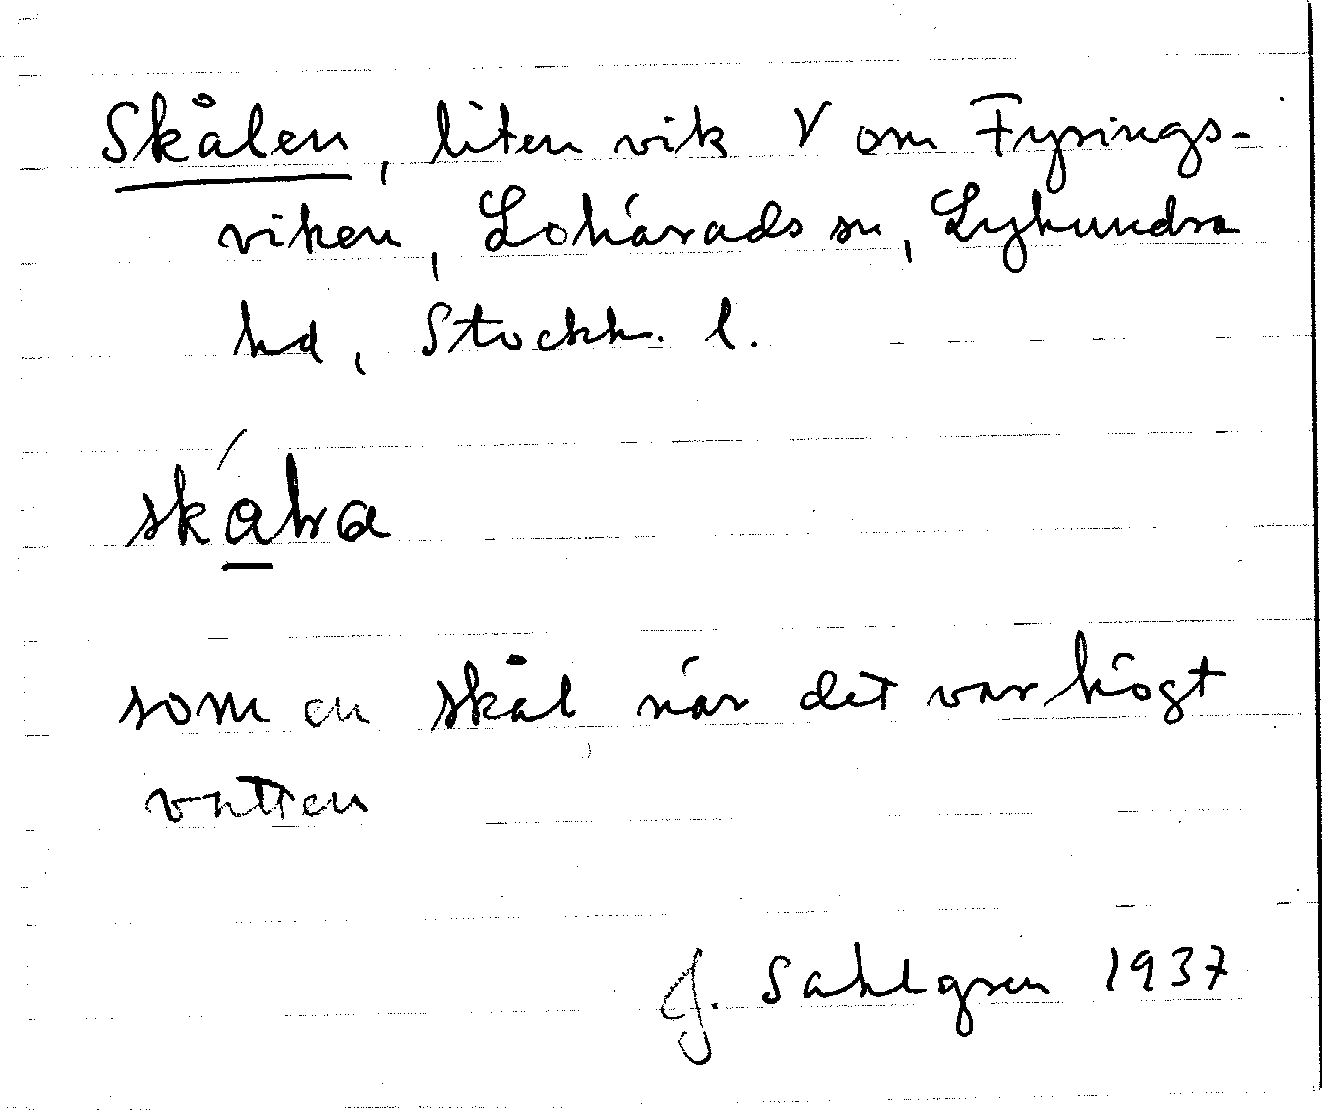 Skålen, liten vik V om Fysings-
viken, Lohärads sn, Lyhundra
hd, Stockh. l.
som en skål när det var högt
vatten
J. Sahlgren 1937